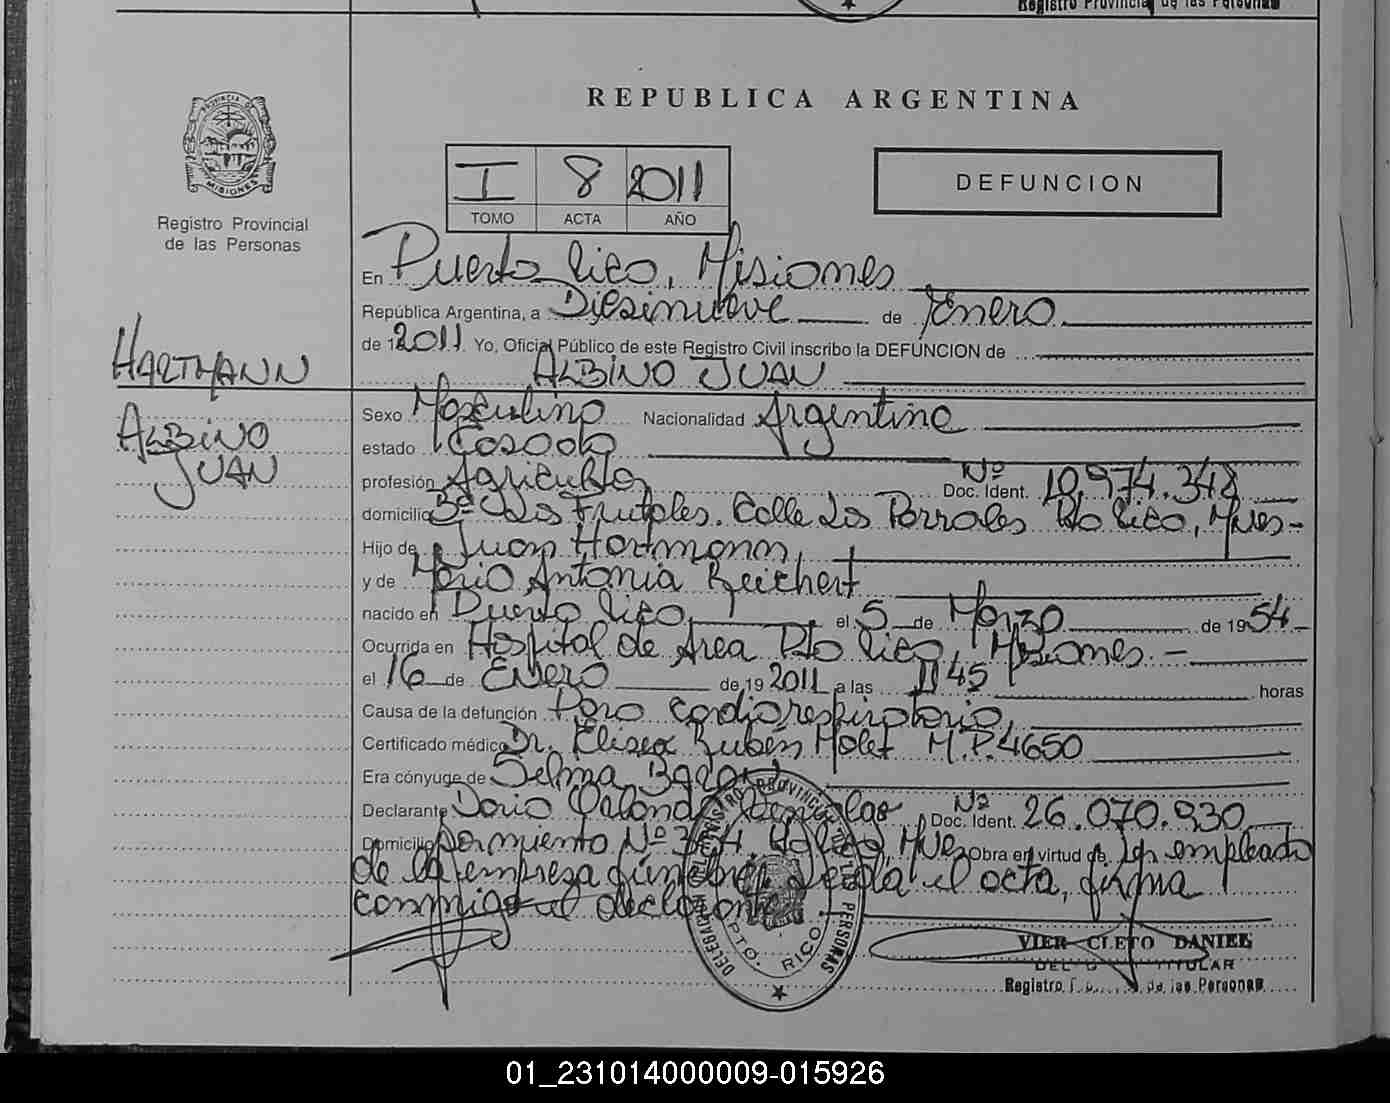 Registro Provincial de las Personas
REPUBLICA ARGENTINA
I 8 2011
TOMO ACTA AÑO
DEFUNCION
PROVINCIA DE
MISIONES
Registro Provincial
de las Personas
En Puerto Rico, Misiones
República Argentina, a Diesinueve de Enero
de 1 2011 Yo, Oficial Público de este Registro Civil inscribo la DEFUNCION de
HARTMANN
ALBINO JUAN
Sexo Masculino Nacionalidad Argentino
ALBINO
JUAN
estado Casado
profesión Agricultor Nº Doc. Ident. 10.974.348
domicilio Bº Los Frutales. Calle Los Parrales Pto Rico, Mnes-
Hijo de Juan Hartmann,
y de María Antonia Reichert
nacido en Puerto Rico, el 5 de Marzo de 1954
Ocurrida en Hospital de Area Pto Rico, Misiones.-
el 16 de Enero de 19 2011 a las 11 45 horas
Causa de la defunción Paro cardiorespiratorio,
Certificado médico Dr. Eliseo Rubén Molet M.P. 4650
Era cónyuge de Selma
Declarante Dario Nº Doc. Ident. 26.070.930
Domicilio Sarmiento Nº Mnes Obra en virtud de ser empleado
de la empresa fúnebre. Leída el acta, firma
conmigo el declarante
REGISTRO PROVINCIAL DE LAS PERSONAS
PTO. RICO
VIER CLETO DANIEL
TITULAR
Registro de las Personas
01_231014000009-015926